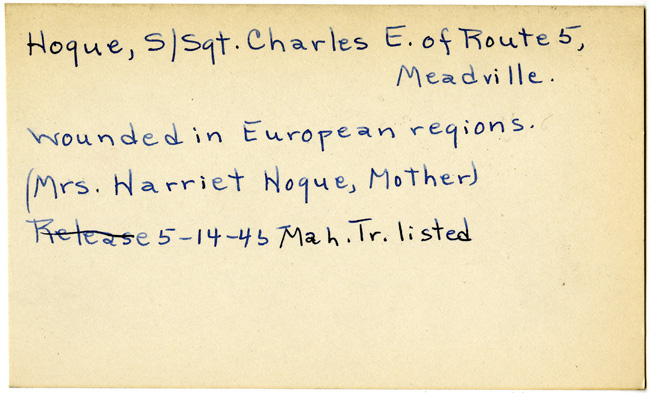 Hogue, S/Sgt. Charles E. of Route 5,
Meadville.
Wounded in European regions.
(Mrs. Harriet Hogue, Mother)
Release 5-14-45 Mah. Tr. listed